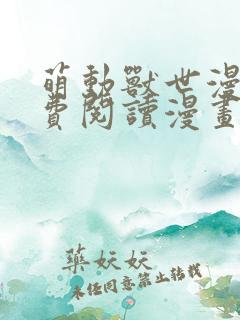 萌動獸世漫
費閱讀漫畫
藥妖妖
未經同意禁止轉載